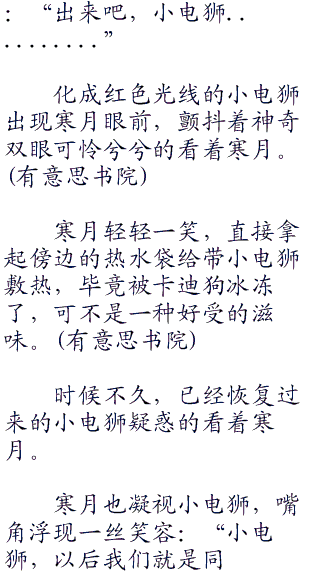 ：“出来吧，小电狮..
........”
化成红色光线的小电狮
出现寒月眼前，颤抖着神奇
双眼可怜兮兮的看着寒月。
(有意思书院)
寒月轻轻一笑，直接拿
起傍边的热水袋给带小电狮
敷热，毕竟被卡迪狗冰冻
了，可不是一种好受的滋
味。(有意思书院)
时候不久，已经恢复过
来的小电狮疑惑的看着寒
月。
寒月也凝视小电狮，嘴
角浮现一丝笑容：“小电
狮，以后我们就是同